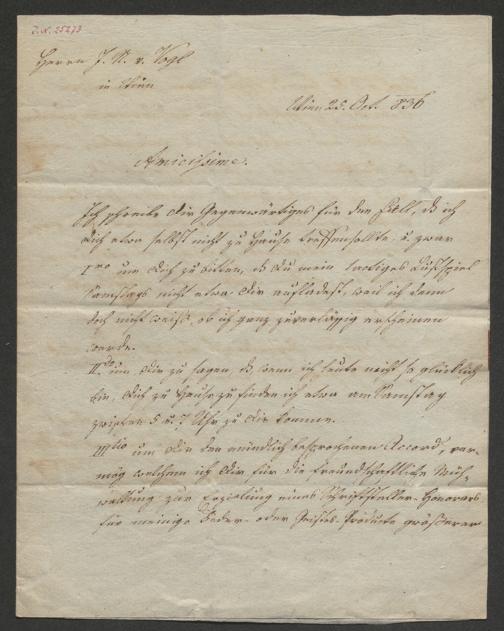 I.N. 25273
Herrn J. N. v. Vogl
in Wien
Wien 25. Oct. 836
Amicissime.
Ich schreibe Dir Gegenwärtiges für den Fall, dß ich
Dich etwa selbst nicht zu Hause treffen sollte, u. zwar
Imo um Dich zu bitten, dß Du mein Lustspiel
Samstags nicht etwa Dir aufladest, weil ich denn
doch nicht weiß, ob ich ganz zuverläßig erscheinen
werde.
IIdo um Dir zu sagen, dß wenn ich heute nicht so glücklich
bin, Dich zu Hause zu finden ich etwa am Samstag
zwischen 5 u. 7 Uhr zu Dir komme.
IIItio um Dir den mündlich besprochenen Accord, ver-
mög welchem ich Dir für die freundschaftliche Muh-
waltung zur Erzielung eines Schriftsteller-Honorars
für meinige Feder- oder Geistes-Producte größerer